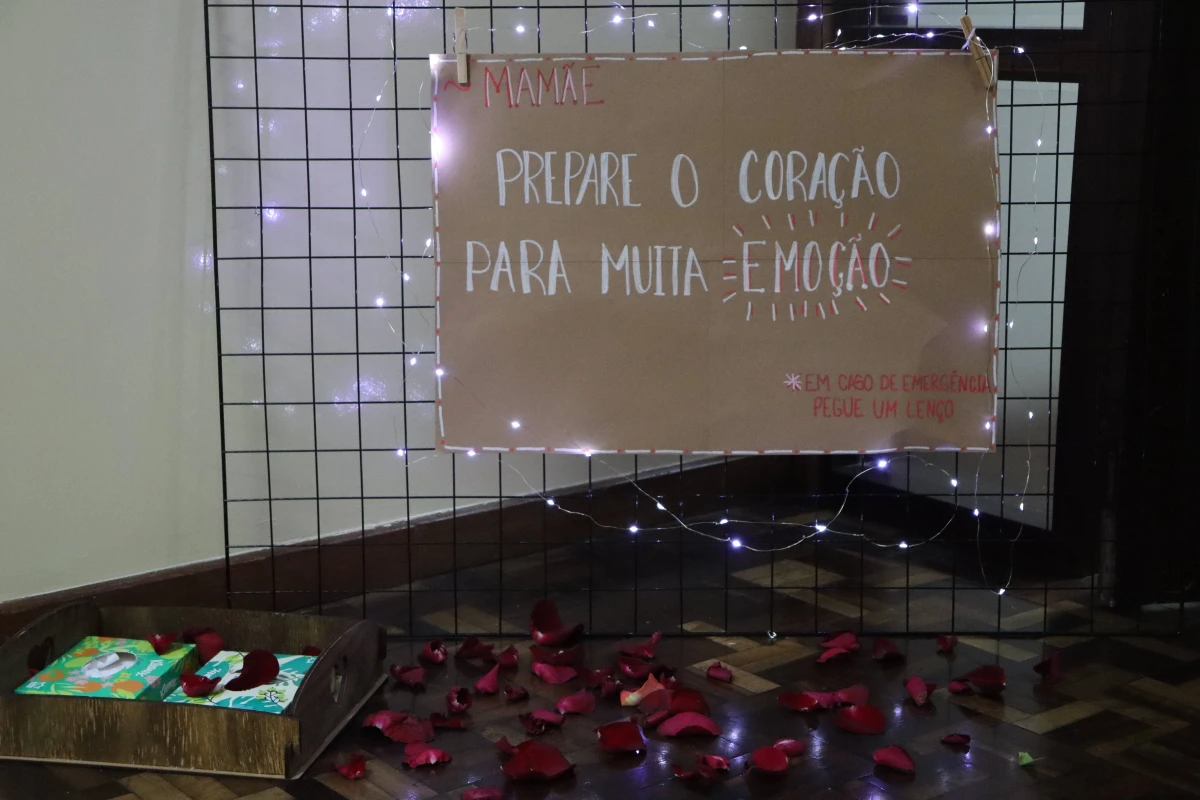 ~ MAMÃE
PREPARE O CORAÇÃO
PARA MUITA EMOÇÃO
*EM CASO DE EMERGÊNCIA
PEGUE UM LENÇO